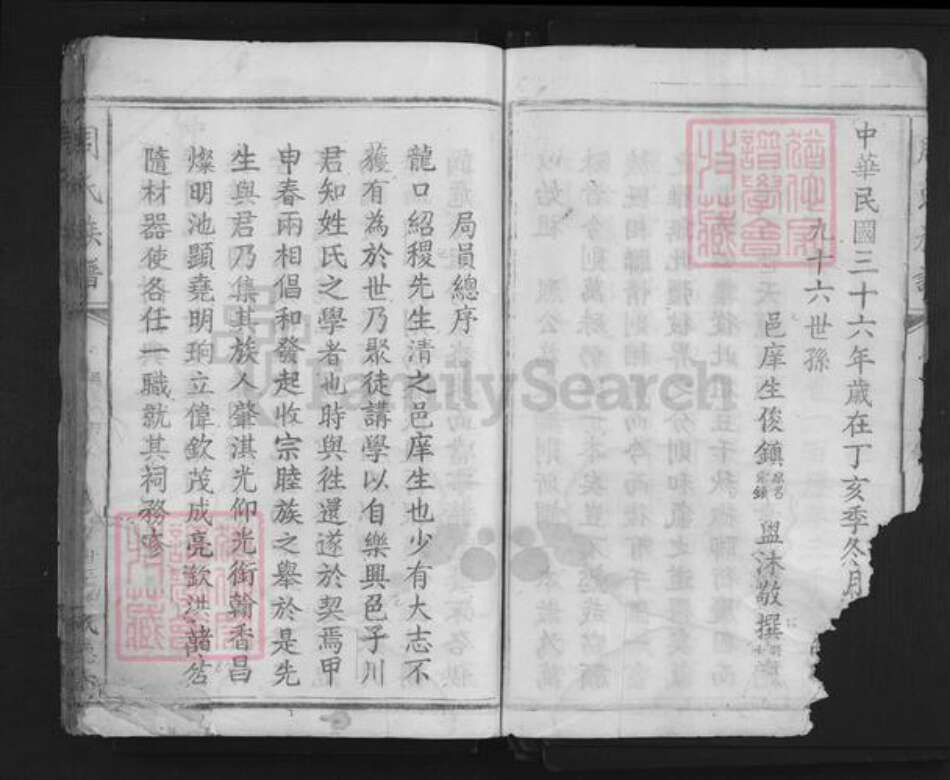 中華民國三十六年歲在丁亥季冬月
九十六世孫
邑庠生俊鎮 原名 盥沐敬撰
局員總序
龍口紹稷先生清之邑庠生也少有大志不
獲有為於世乃聚徒講學以自樂興邑子川
君知姓氏之學者也時與往還遂於契焉甲
申春兩相倡和發起收宗睦族之舉於是先
生與君乃集其族人肇淇光仰光銜翰香昌
燦明池顯堯明珣立偉欽茂成亮歎洪諸君
隨材器使各任一職就其祠務修
周氏族譜
FamilySearch